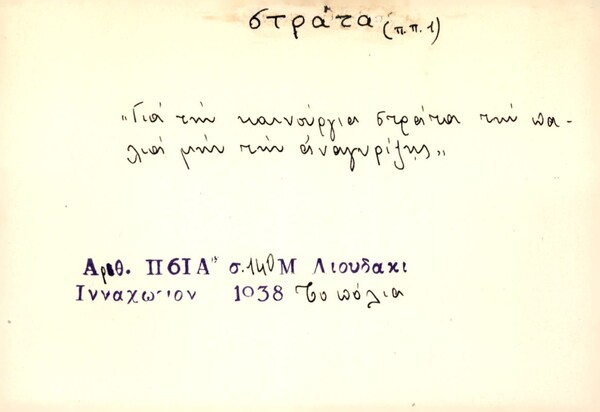 στράτα (π.π.1)
"Γιά τήν καινούργια στράτα τήν πα-
λιά μήν τήν ἀναγυρίζῃς"
Αριθ. ΠϬΙΑ' σ. 140 Μ Λιουδακι
Ινναχωριον 1938 Τοπόλια